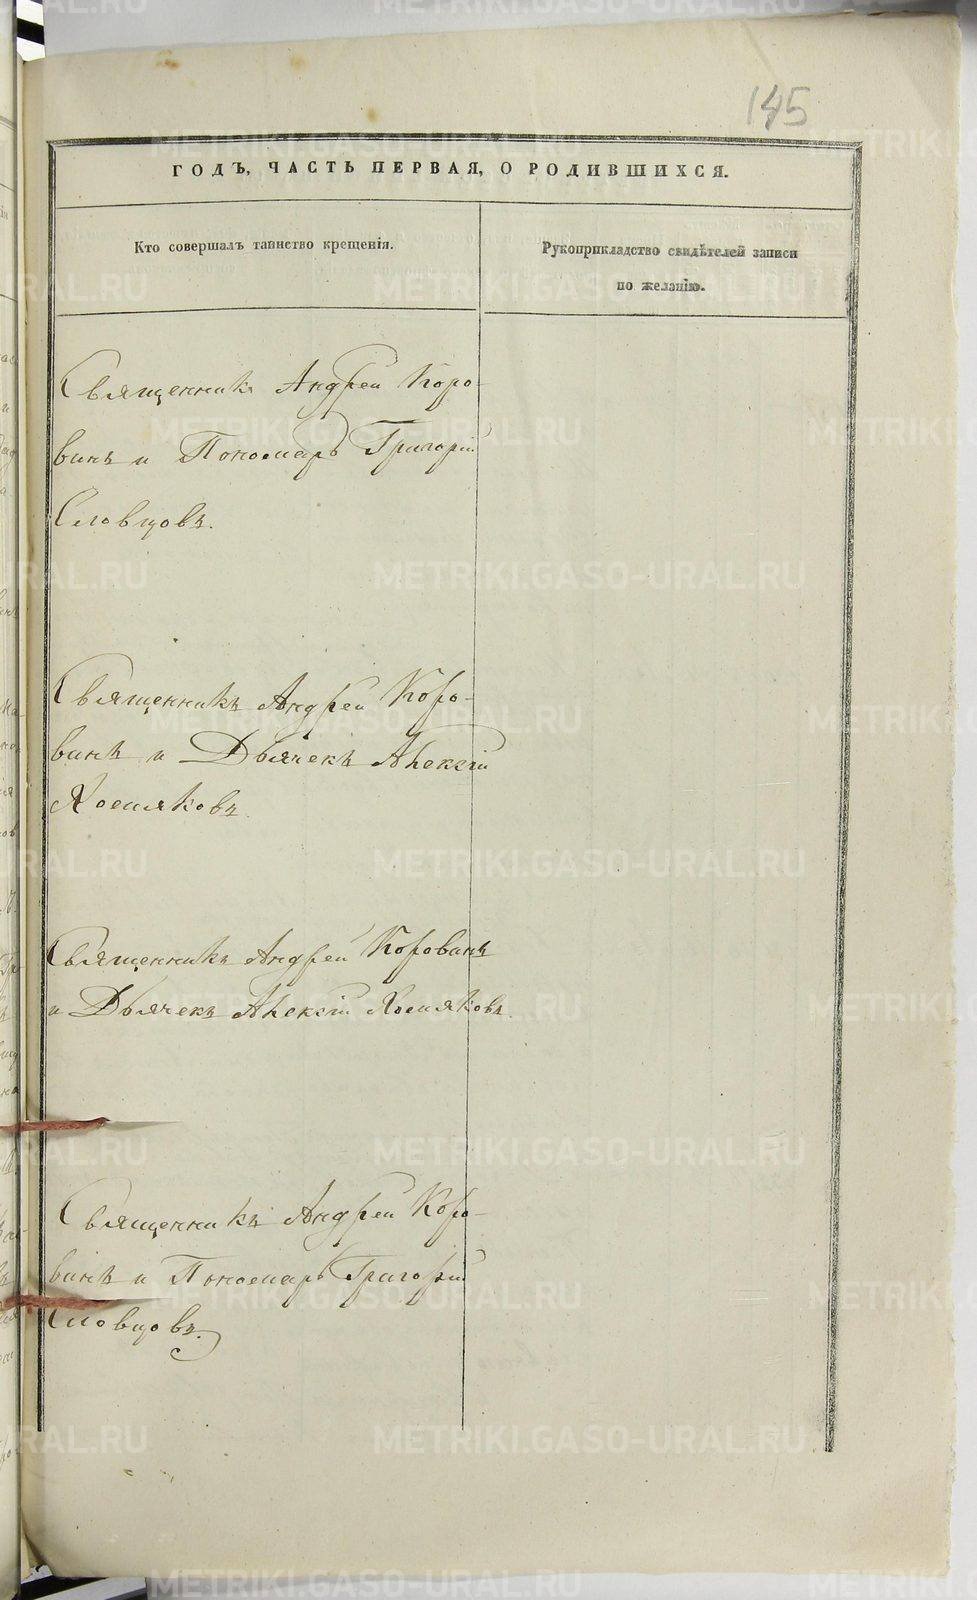 145
ГОДЪ, ЧАСТЬ ПЕРВАЯ, О РОДИВШИХСЯ.
Кто совершалъ таинство крещенія.
Рукоприкладство свидѣтелей записи
по желанію.
Священникъ Андрей Коро-
винъ и Пономарь Григорій
Словцовъ.
Священникъ Андрей Коро-
винъ и Дьячекъ Алексій
Хомяковъ.
Священникъ Андрей Коровинъ
и Дьячекъ Алексій Хомяковъ.
Священникъ Андрей Коро-
винъ и Пономарь Григорій
Словцовъ.
METRIKI.GASO-URAL.RU